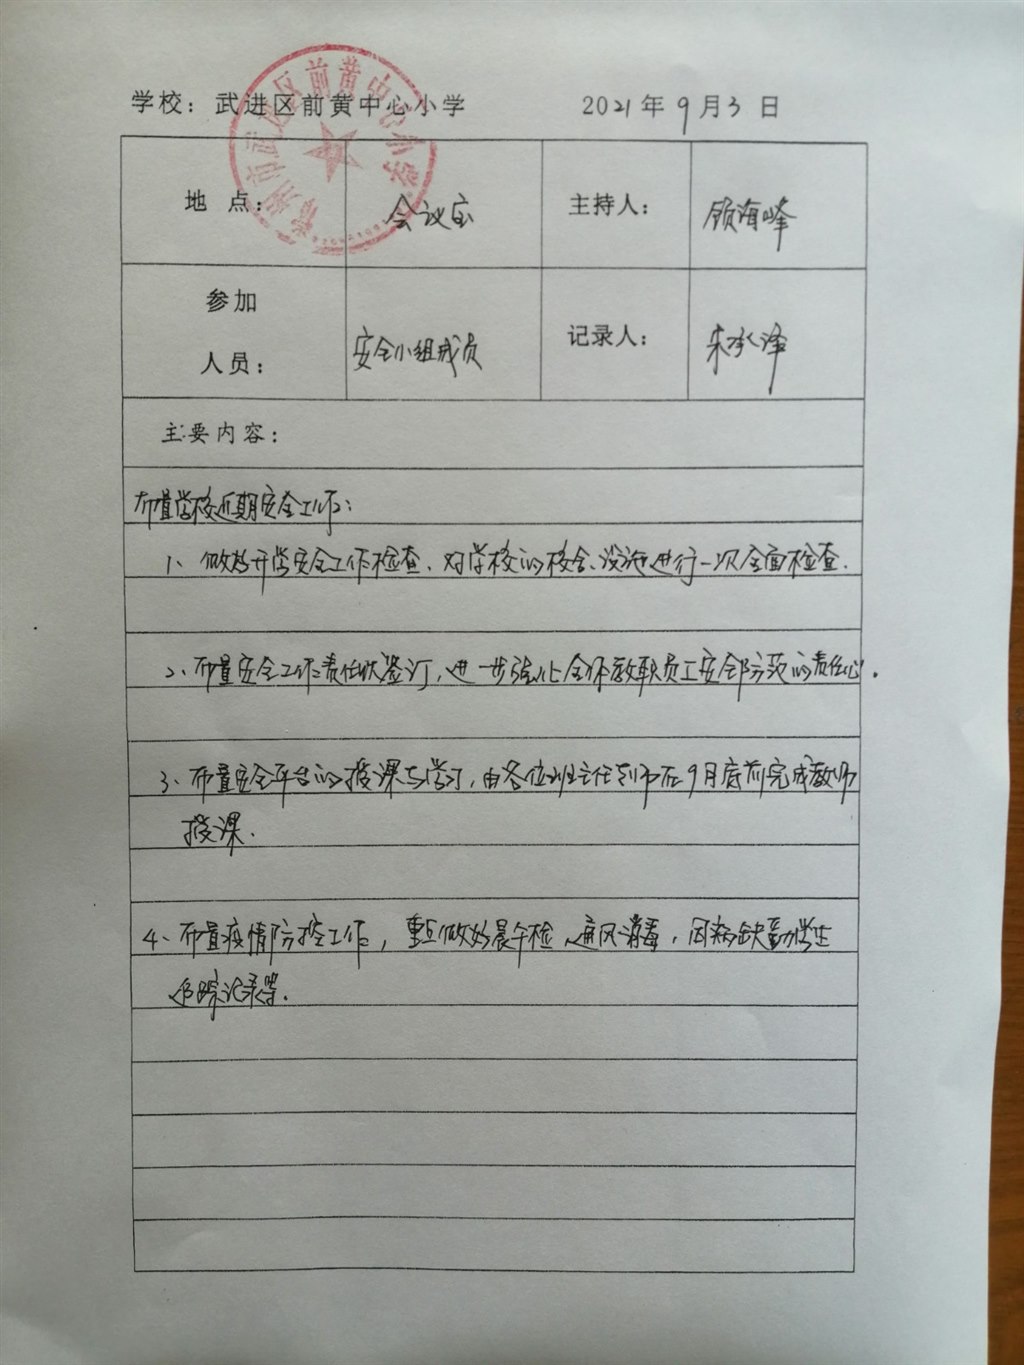 学校：武进区前黄中心小学 2021年9月3日
常州市武进区前黄中心小学
地 点： 会议室 主持人： 顾海峰
参加
人员： 安全小组成员 记录人： 朱承泽
主要内容：
布置学校近期安全工作：
1、做好开学安全工作检查、对学校的校舍、设施进行一次全面检查.
2、布置安全工作责任状签订，进一步强化全体教职员工安全防范的责任心.
3、布置安全平台的授课与学习，由各位班主任老师在9月底前完成教师
授课.
4、布置疫情防控工作，重点做好晨午检、通风消毒，因病缺勤学生
追踪记录等.